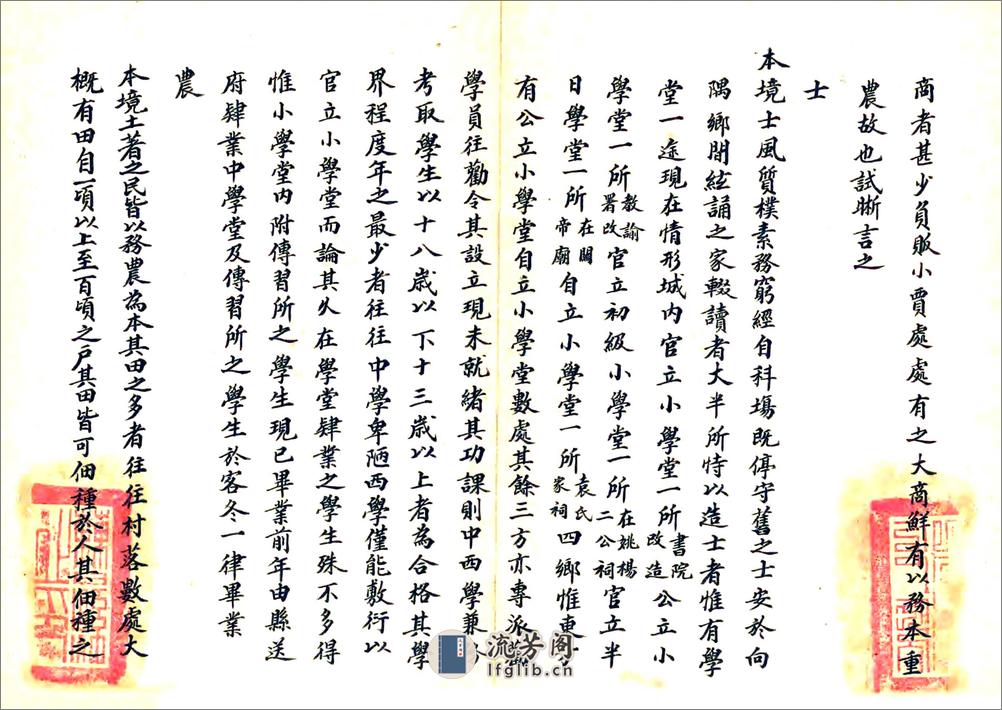 商者甚少負販小賈處處有之大商鮮有以務本重
農故也試晰言之
士
本境士風質樸素務窮經自科場既停守舊之士安於向
隅鄉閭絃誦之家輟讀者大半所恃以造士者惟有學
堂一途現在情形城內官立小學堂一所書院改造公立小
學堂一所教諭署改官立初級小學堂一所在姚楊二公祠官立半
日學堂一所在關帝廟自立小學堂一所袁氏家祠四鄉惟東
有公立小學堂自立小學堂數處其餘三方亦專派
學員往勸令其設立現未就緒其功課則中西學兼
考取學生以十八歲以下十三歲以上者為合格其學
界程度年之最少者往往中學卑陋西學僅能敷衍以
官立小學堂而論其久在學堂肄業之學生殊不多得
惟小學堂內附傳習所之學生現已畢業前年由縣送
府肄業中學堂及傳習所之學生於客冬一律畢業
農
本境土著之民皆以務農為本其田之多者往往村落數處大
概有田自一頃以上至百頃之戶其田皆可佃種於人其佃種之
流芳阁
lfglib.cn